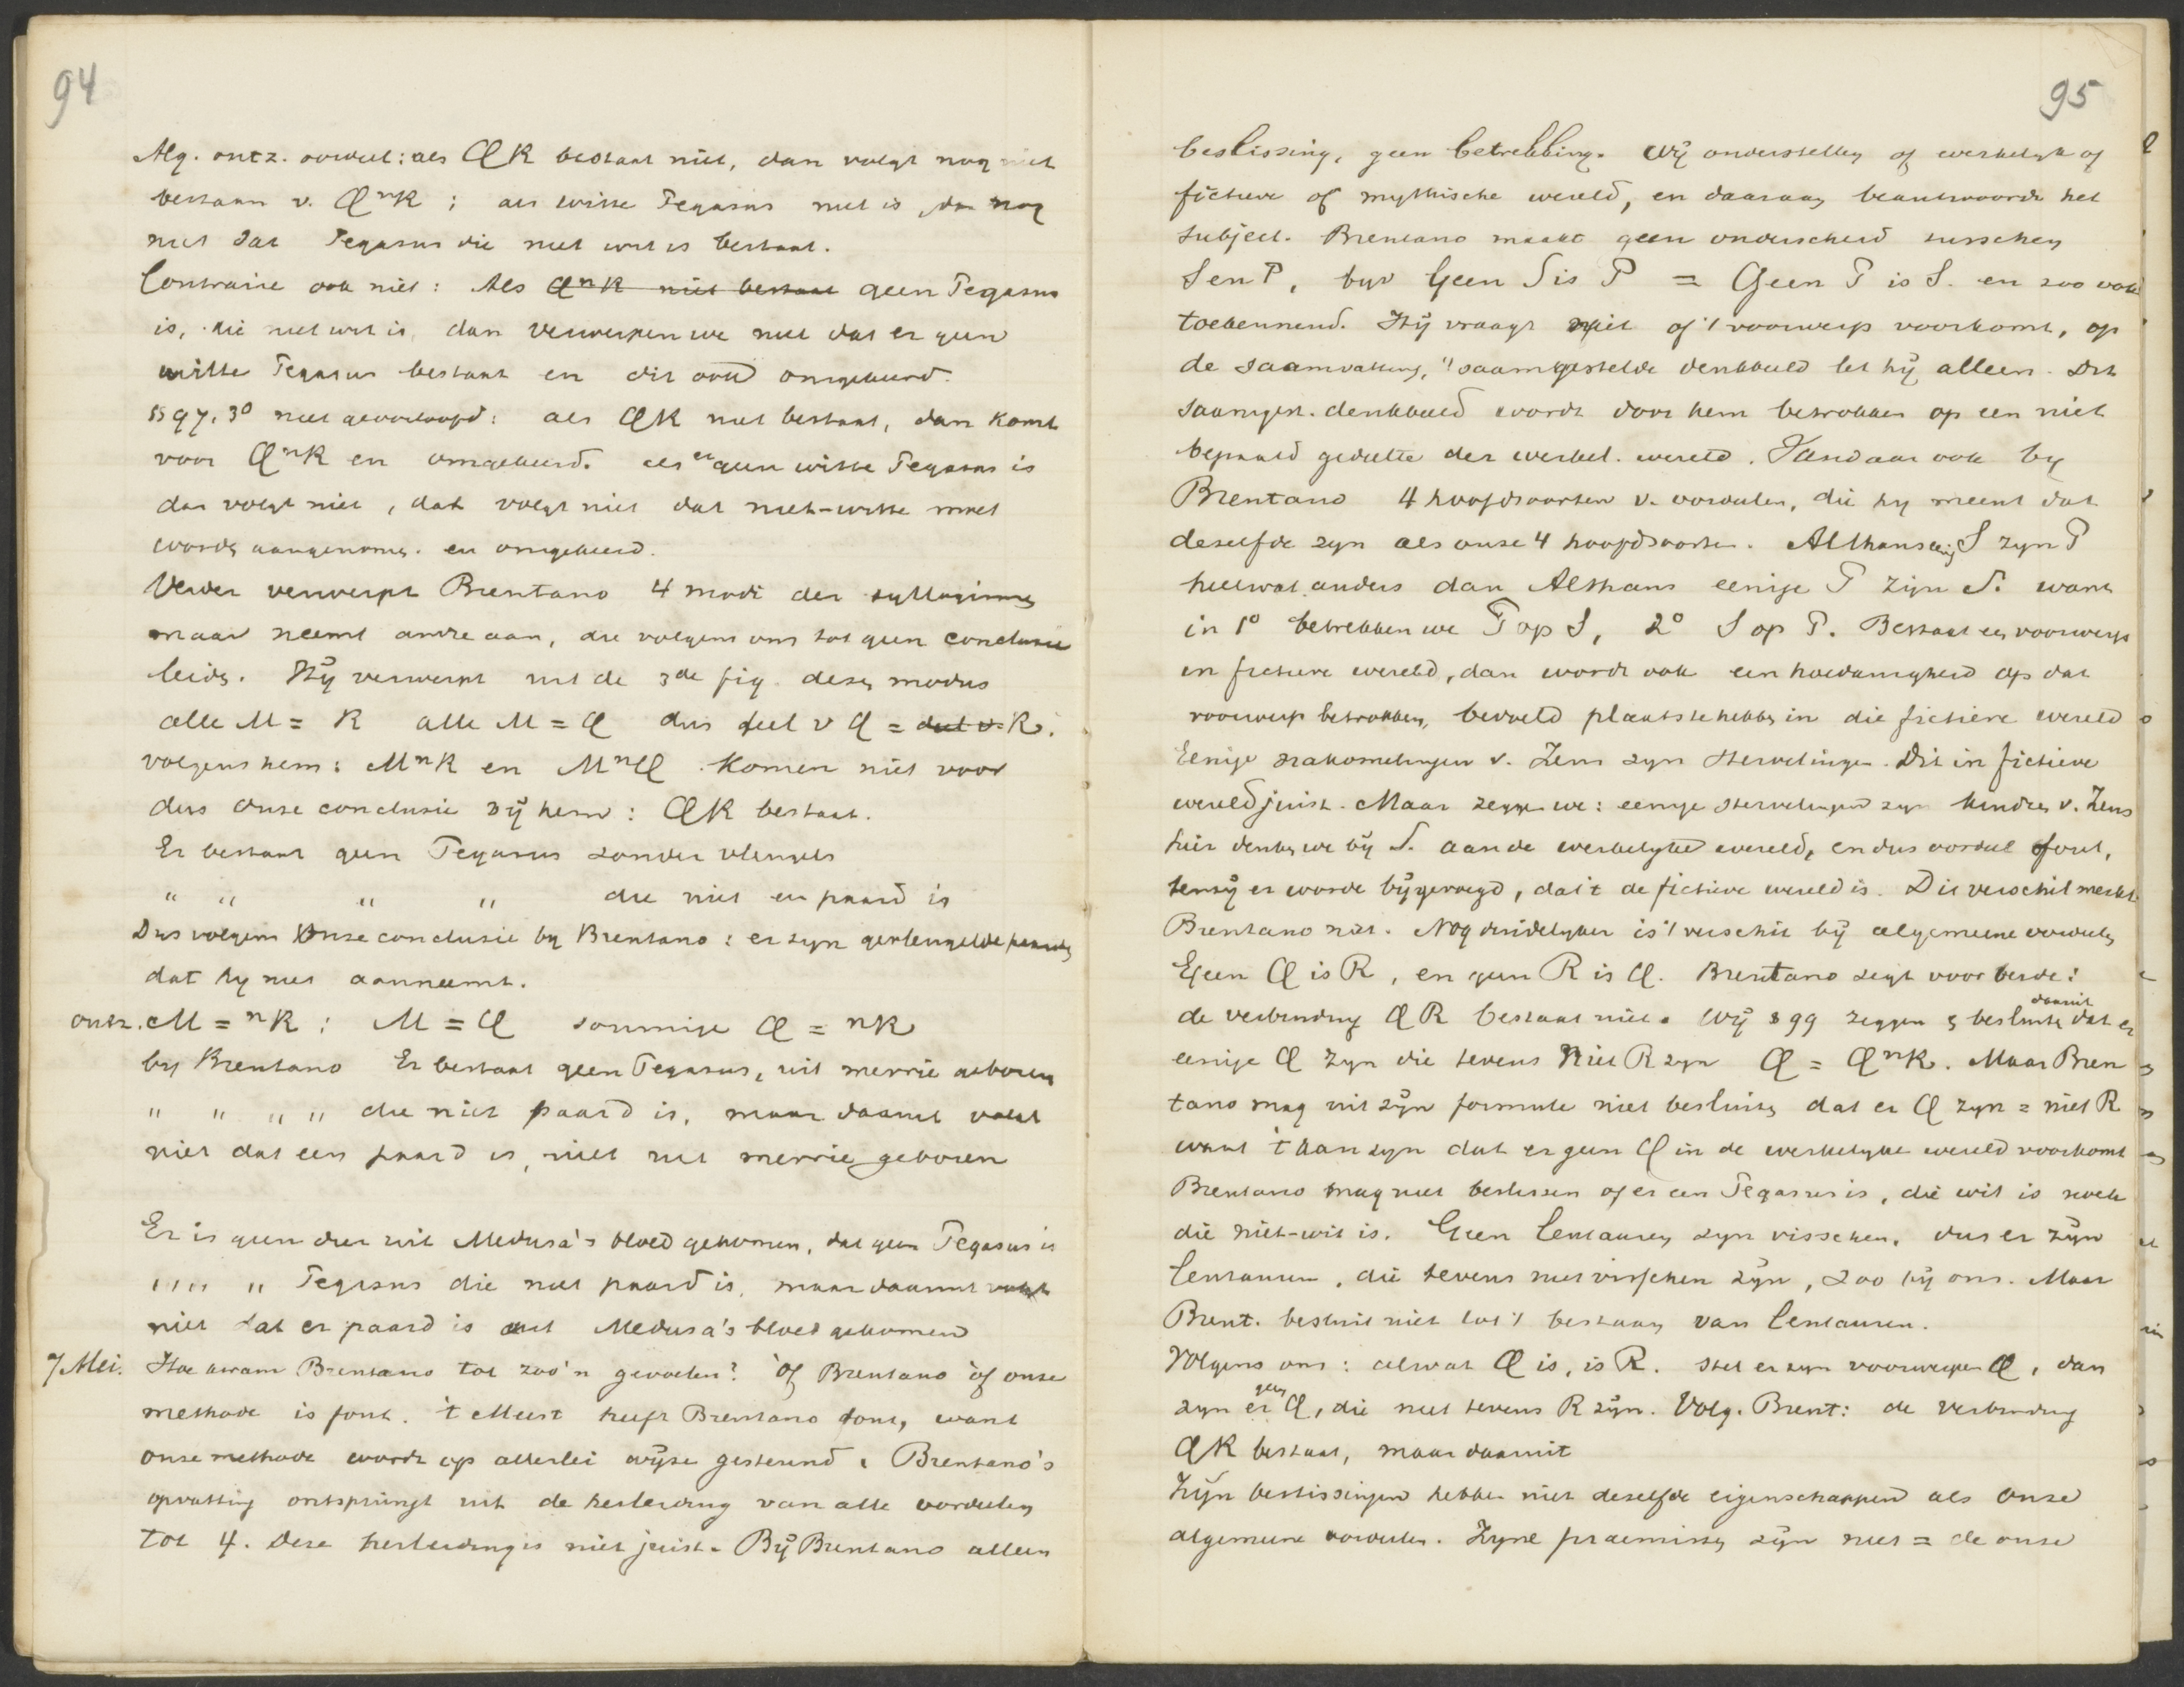 94
Alg. ontz. oordeel: als QR bestaat niet, dan volgt nog niet
bestaan v. QnR ; als witte Pegasus niet is, dan nog
niet dat Pegasus die niet wit is bestaat.
Contraire ook niet: Als QnR niet bestaat geen Pegasus
is, die niet wit is, dan verwerpen we niet dat er geen
witte Pegasus bestaat en dit ook omgekeerd.
§97, 3º niet geoorloofd: als QR niet bestaat, dan komt
voor QnR en omgekeerd. als er geen witte Pegasus is
dan volgt niet, dat volgt niet dat niet-witte moet
worden aangenomen. en omgekeerd.
Verder verwerpt Brentano 4 modi der syllogismen
maar neemt andre aan, die volgens ons tot geen conclusie
leiden. Hij verwerpt uit de 3de fig. dezen modus
alle M = R alle M = Q dus deel v Q = deel v. R.
volgens hem: MnR en MnQ komen niet voor
dus onze conclusie bij hem: QR bestaat.
Er bestaat geen Pegasus zonder vleugels
" " " " die niet een paard is
Dus volgens onze conclusie by Brentano: er zyn gevleugelde paarden
dat hy niet aanneemt.
ontz. M = nR : M = Q sommige Q = nR
by Brentano Er bestaat geen Pegasus, uit merrie geboren
" " " " die niet paard is, maar daaruit volgt
niet dat een paard is, niet uit merrie geboren
Er is geen dier uit Medusa's bloed gekomen, dat geen Pegasus is
" " " Pegasus die niet paard is, maar daaruit volgt
niet dat er paard is uit Medusa's bloed gekomen
7 Mei. Hoe kwam Brentano tot zoo'n gevoelen? òf Brentano òf onze
methode is fout. 't Meest heeft Brentano fout, want
onze methode wordt op allerlei wijze gesteund. Brentano's
opvatting ontspringt uit de herleiding van alle oordeelen
tot 4. Deze herleiding is niet juist. Bij Brentano alleen
95
beslissing, geen betrekking. Wij onderstellen of werkelijk of
fictieve of mythische wereld, en daaraan beantwoordt het
subject. Brentano maakt geen onderscheid tusschen
S en P, byv Geen S is P = Geen P is S. en zoo ook
toekennend. Hij vraagt niet of 't voorwerp voorkomt, op
de saamvatting, 't saamgestelde denkbeeld let hij alleen. Dit
saamgest. denkbeeld wordt door hem betrokken op een niet
bepaald gedeelte der werkel. wereld. Vandaar ook by
Brentano 4 hoofdsoorten v. oordeelen, die hy meent dat
dezelfde zyn als onze 4 hoofdsoorten. Althans einige S zyn P
heelwat anders dan Althans eenige P zijn S. want
in 1º betrekken we P op S, 2º S op P. Bestaat een voorwerp
in fictieve wereld, dan wordt ook een hoedanigheid op dat
voorwerp betrokken, bevoeld plaats te hebben in die fictieve wereld
Eenige nakomelingen v. Zeus zyn stervelingen. Dit in fictieve
wereld juist. Maar zeggen we: eenige stervelingen zyn kinderen v. Zeus
hier denken we bij S. aan de werkelyke wereld, en dus oordeel fout,
tenzij er worde bijgevoegd, dat 't de fictieve wereld is. Dit verschil merkt
Brentano niet. Nog duidelyker is 't verschil bij algemeene oordeelen
Geen Q is R, en geen R is Q. Brentano zegt voor beide:
de verbinding QR bestaat niet. Wij § 99 zeggen & besluiten daaruit dat er
eenige Q zyn die tevens niet R zyn Q = QnR. Maar Bren
tano mag uit zijn formule niet besluiten dat er Q zyn = niet R
want 't kan zyn dat er geen Q in de werkelyke wereld voorkomt
Brentano mag niet beslissen of er een Pegasus is, die wit is noch
die niet-wit is. Geen Centauren zyn visschen, dus er zijn
Centauren, die tevens niet visschen zijn, zoo bij ons. Maar
Brent. besluit niet tot 't bestaan van Centauren.
Volgens ons: alwat Q is, is R. Stel er zyn voorwerpen Q, dan
zyn er geen Q, die niet tevens R zijn. Volg. Brent: de verbinding
QR bestaat, maar daaruit
Zijn beslissingen hebben niet dezelfde eigenschappen als onze
algemeene oordeelen. Zyne praemissen zijn niet = de onze